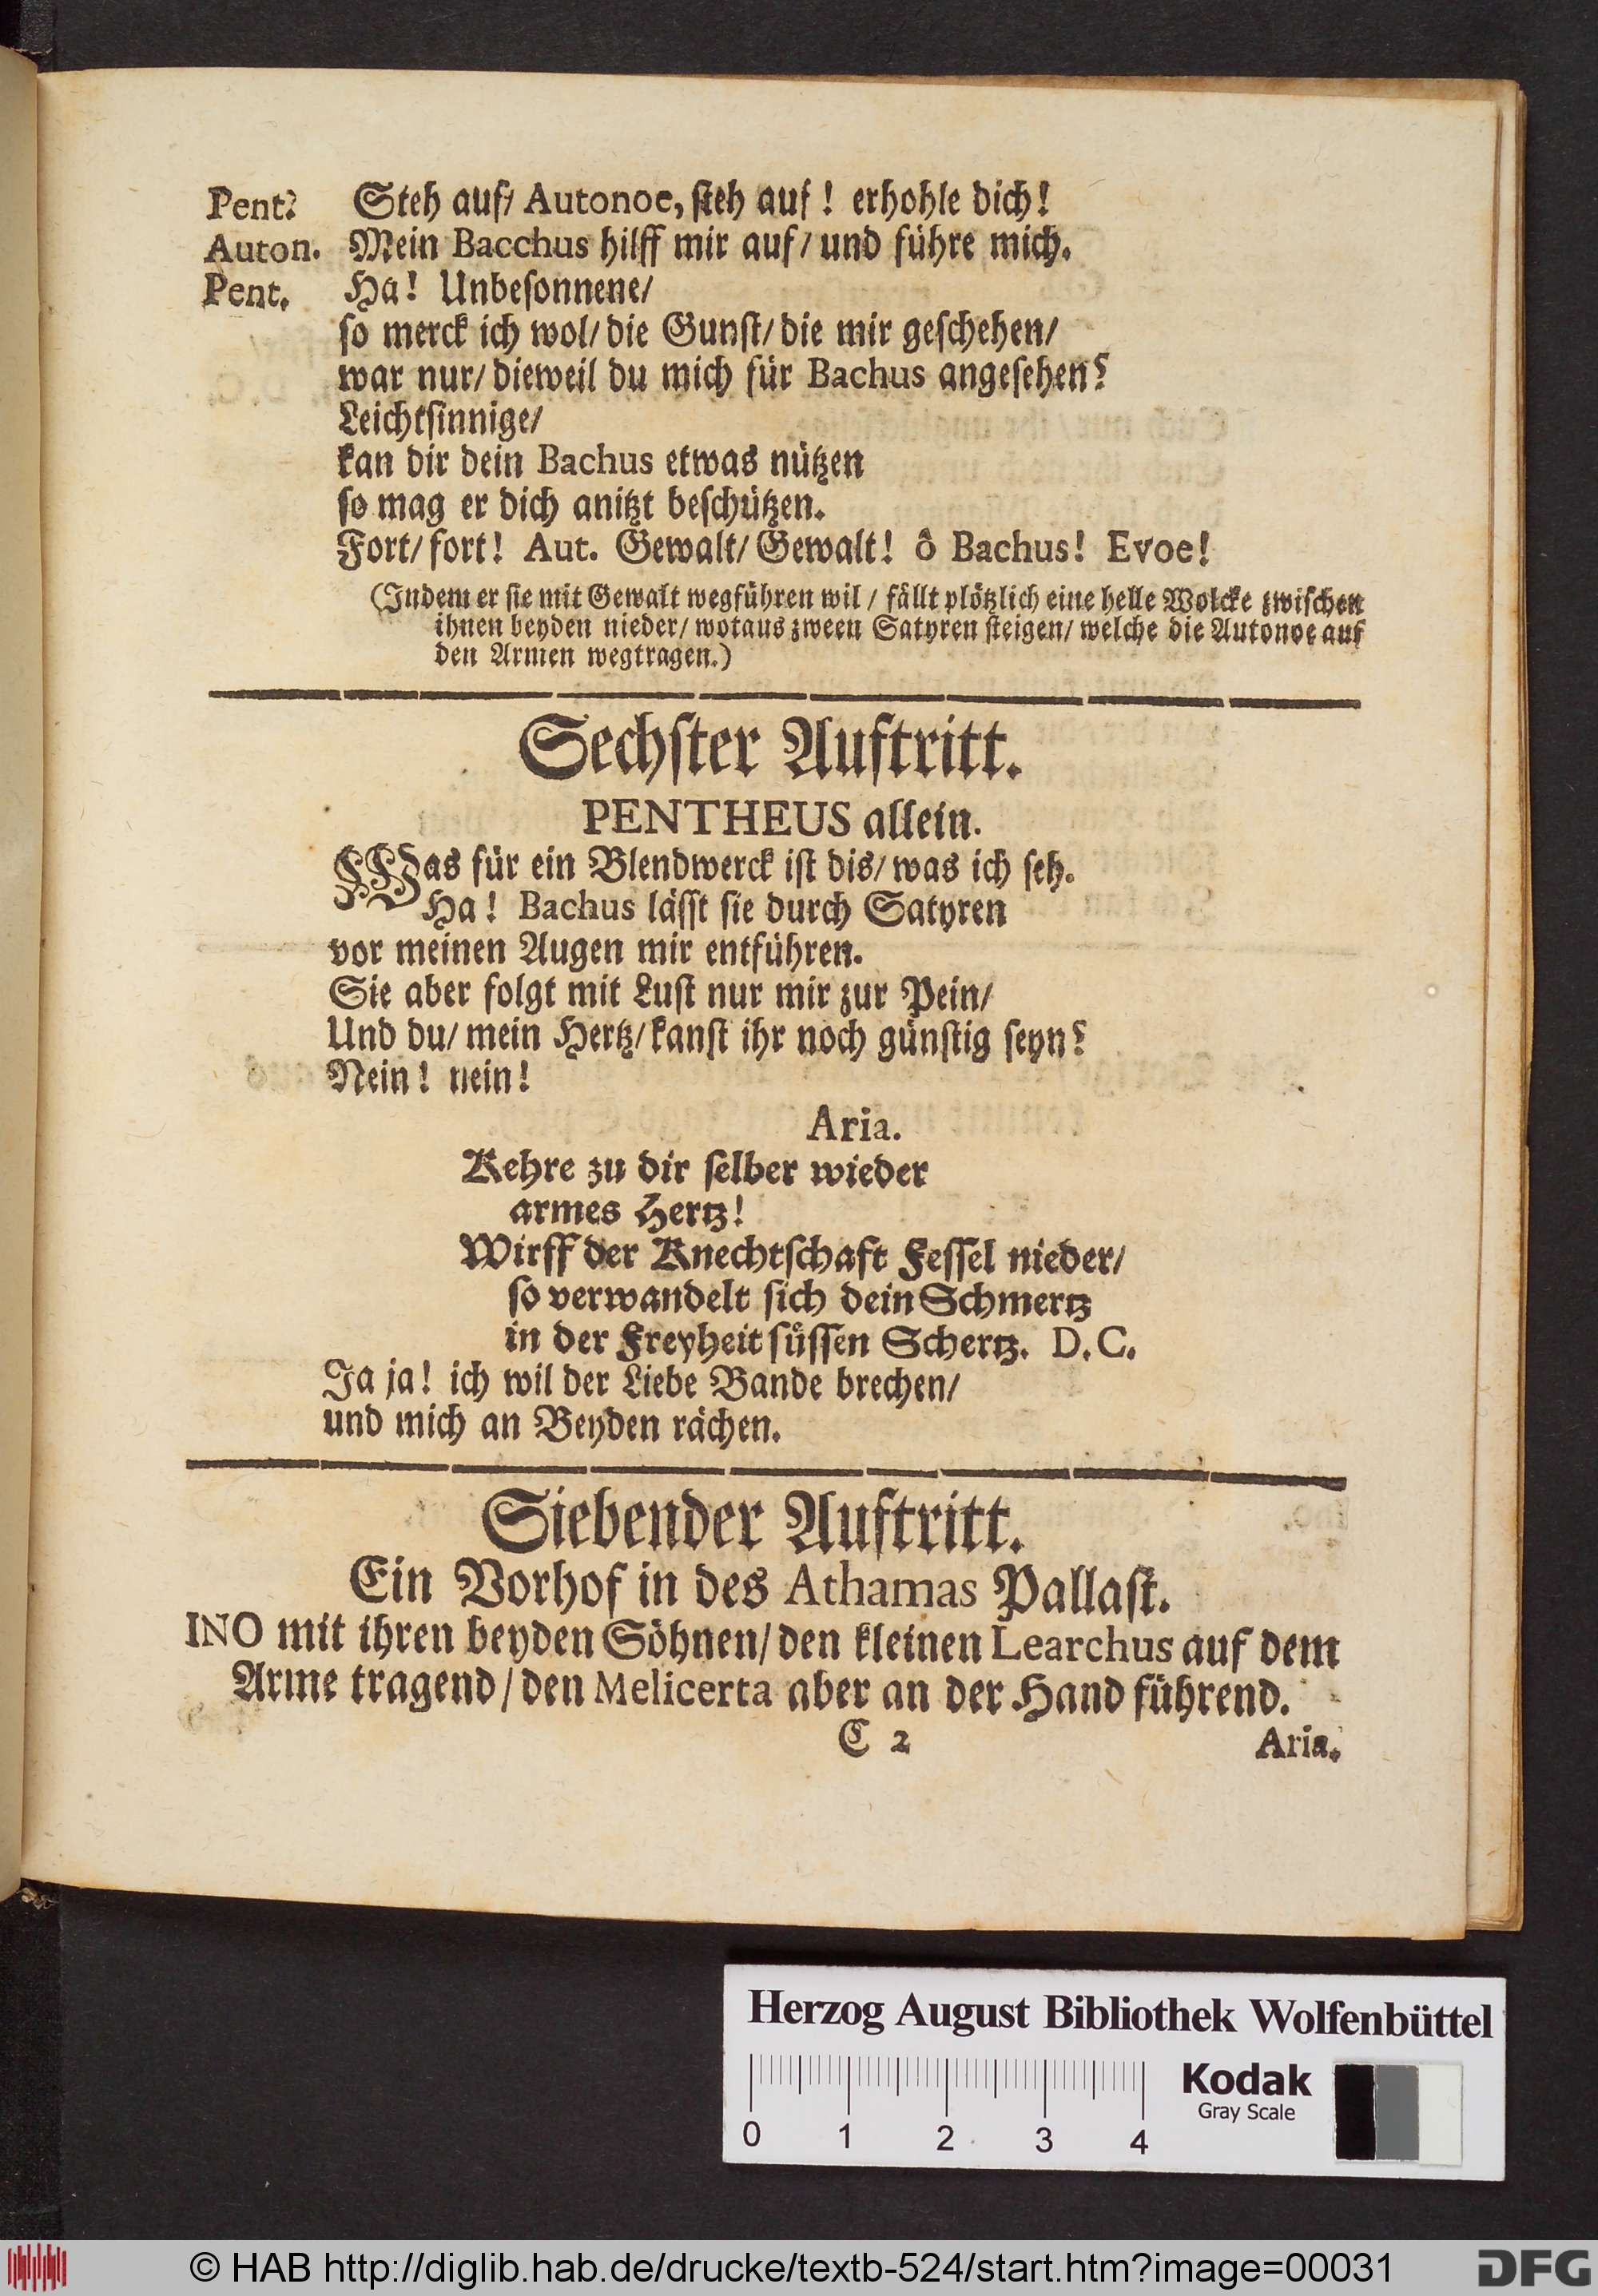 Pent? Steh auf/ Autonoe, steh auf! erhohle dich!
Auton. Mein Bacchus hilff mir auf/ und führe mich.
Pent. Ha! Unbesonnene/
so merck ich wol/ die Gunst/ die mir geschehen/
war nur/ dieweil du mich für Bachus angesehen?
Leichtsinnige/
kan dir dein Bachus etwas nützen
so mag er dich anitzt beschützen.
Fort/ fort! Aut. Gewalt/ Gewalt! ô Bachus! Evoe!
(Indem er sie mit Gewalt wegführen wil / fällt plötzlich eine helle Wolcke zwischen
ihnen beyden nieder/ wotaus zween Satyren steigen/ welche die Autonoe auf
den Armen wegtragen.)
Sechster Auftritt.
PENTHEUS allein.
Was für ein Blendwerck ist dis/ was ich seh.
Ha! Bachus lässt sie durch Satyren
vor meinen Augen mir entführen.
Sie aber folgt mit Lust nur mir zur Pein/
Und du/ mein Hertz/ kanst ihr noch günstig seyn?
Nein! nein!
Aria.
Kehre zu dir selber wieder
armes Hertz!
Wirff der Knechtschaft Fessel nieder/
so verwandelt sich dein Schmertz
in der Freyheit süssen Schertz. D. C.
Ja ja! ich wil der Liebe Bande brechen/
und mich an Beyden rächen.
Siebender Auftritt.
Ein Vorhof in des Athamas Pallast.
INO mit ihren beyden Söhnen/ den kleinen Learchus auf dem
Arme tragend/ den Melicerta aber an der Hand führend.
C 2 Aria.
Herzog August Bibliothek Wolfenbüttel
Kodak
Gray Scale
0 1 2 3 4
© HAB http://diglib.hab.de/drucke/textb-524/start.htm?image=00031
DFG